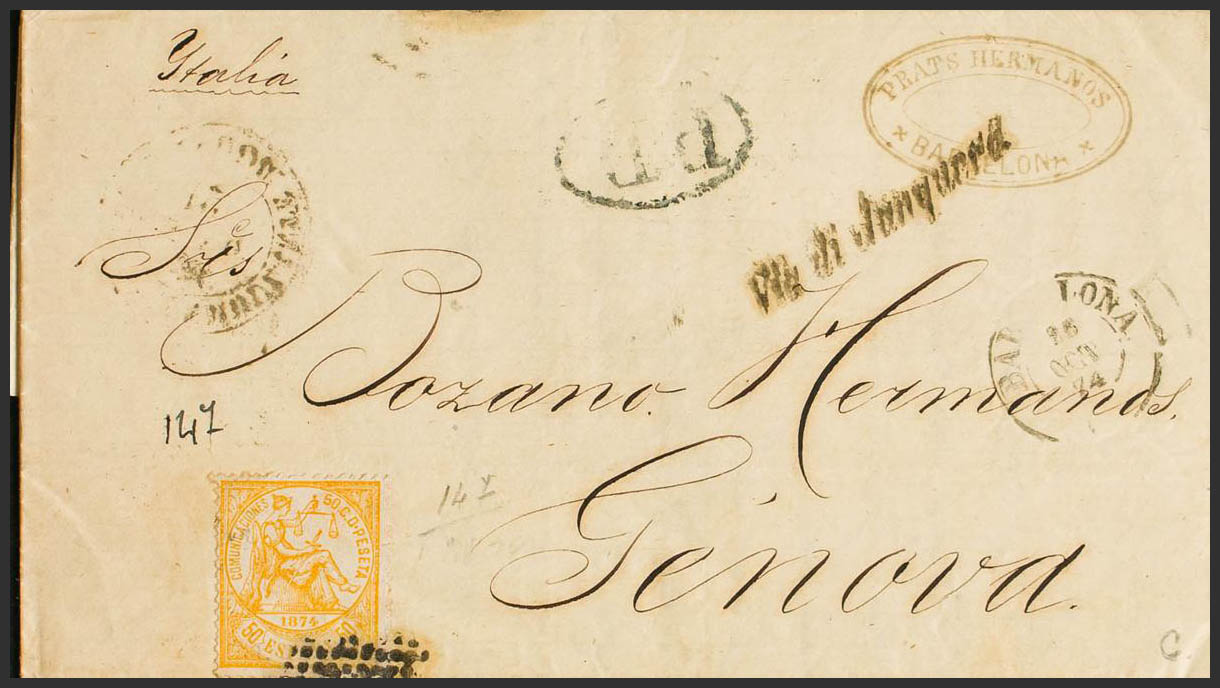 Italia
PRATS HERMANOS
BARCELONA
P.D.
Vía di Junquera
Sres
Bozano Hermanos.
BARCELONA
OCT
74
147
Génova.
COMUNICACIONES
50 C. D. PESETA
1874
147
C.